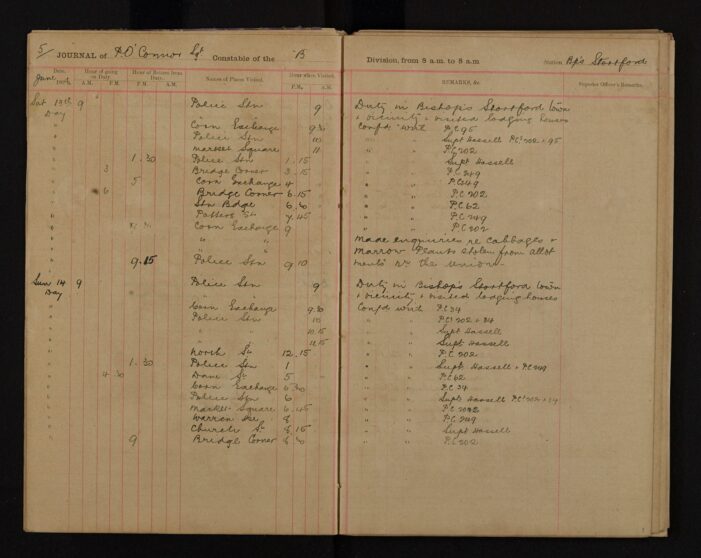 5/ JOURNAL of P O'Connor Sgt Constable of the B
Date. Hour of going on Duty. Hour of Return from Duty. Names of Places Visited. Hour when Visited.
June A.M. P.M. P.M. A.M. P.M. A.M.
Sat 13th 9 Police Stn 9
Day
" Corn Exchange 9.30
" Police Stn 10
" Market Square 11
" 1.30 Police Stn 1.15
" 3 Bridge Corner 3.15
" 5 Corn Exchange 4
" 6 Bridge Corner 6.15
" Stn Bdge 6.30
" Potters St 7.45
" Corn Exchange 9
" " "
" 9.15 Police Stn 9.10
Sun 14 9 Police Stn 9
Day
" Corn Exchange 9.30
" Police Stn 10
" " 10.15
" " 11.15
" North St 12.15
" 1.30 Police Stn 1
" 4 30 Dane St 5
" Corn Exchange 5 30
" Police Stn 6
" Market Square 6.45
" Warren 8
" Church St 8.15
" 9 Bridge Corner 8 30
Division, from 8 a.m. to 8 a.m. Station Bp's Stortford
REMARKS, &c. Superior Officer's Remarks.
Duty in Bishop's Stortford town
+ vicinity + visited lodging houses
Conf'd with P.C 95
" " Supt Hassell P.Cs 202 + 95
" " P.C 202
" " Supt Hassell
" " P.C 249
" " P.C 249
" " P.C 202
" " P.C 62
" " P.C 249
" " P.C 202
made enquiries re Cabbages +
marrow Plants stolen from allot
ments nr the Union
Duty in Bishop's Stortford town
+ vicinity + visited lodging houses
Conf'd with P.C 34
" " P.Cs 202 + 34
" " Supt Hassell
" " Supt Hassell
" " P.C 202
" " Supt Hassell + P.C 249
" " P.C 62
" " P.C 34
" " Supt Hassell P.Cs 202 + 34
" " P.C 202
" " P.C 249
" " Supt Hassell
" " P.C 202